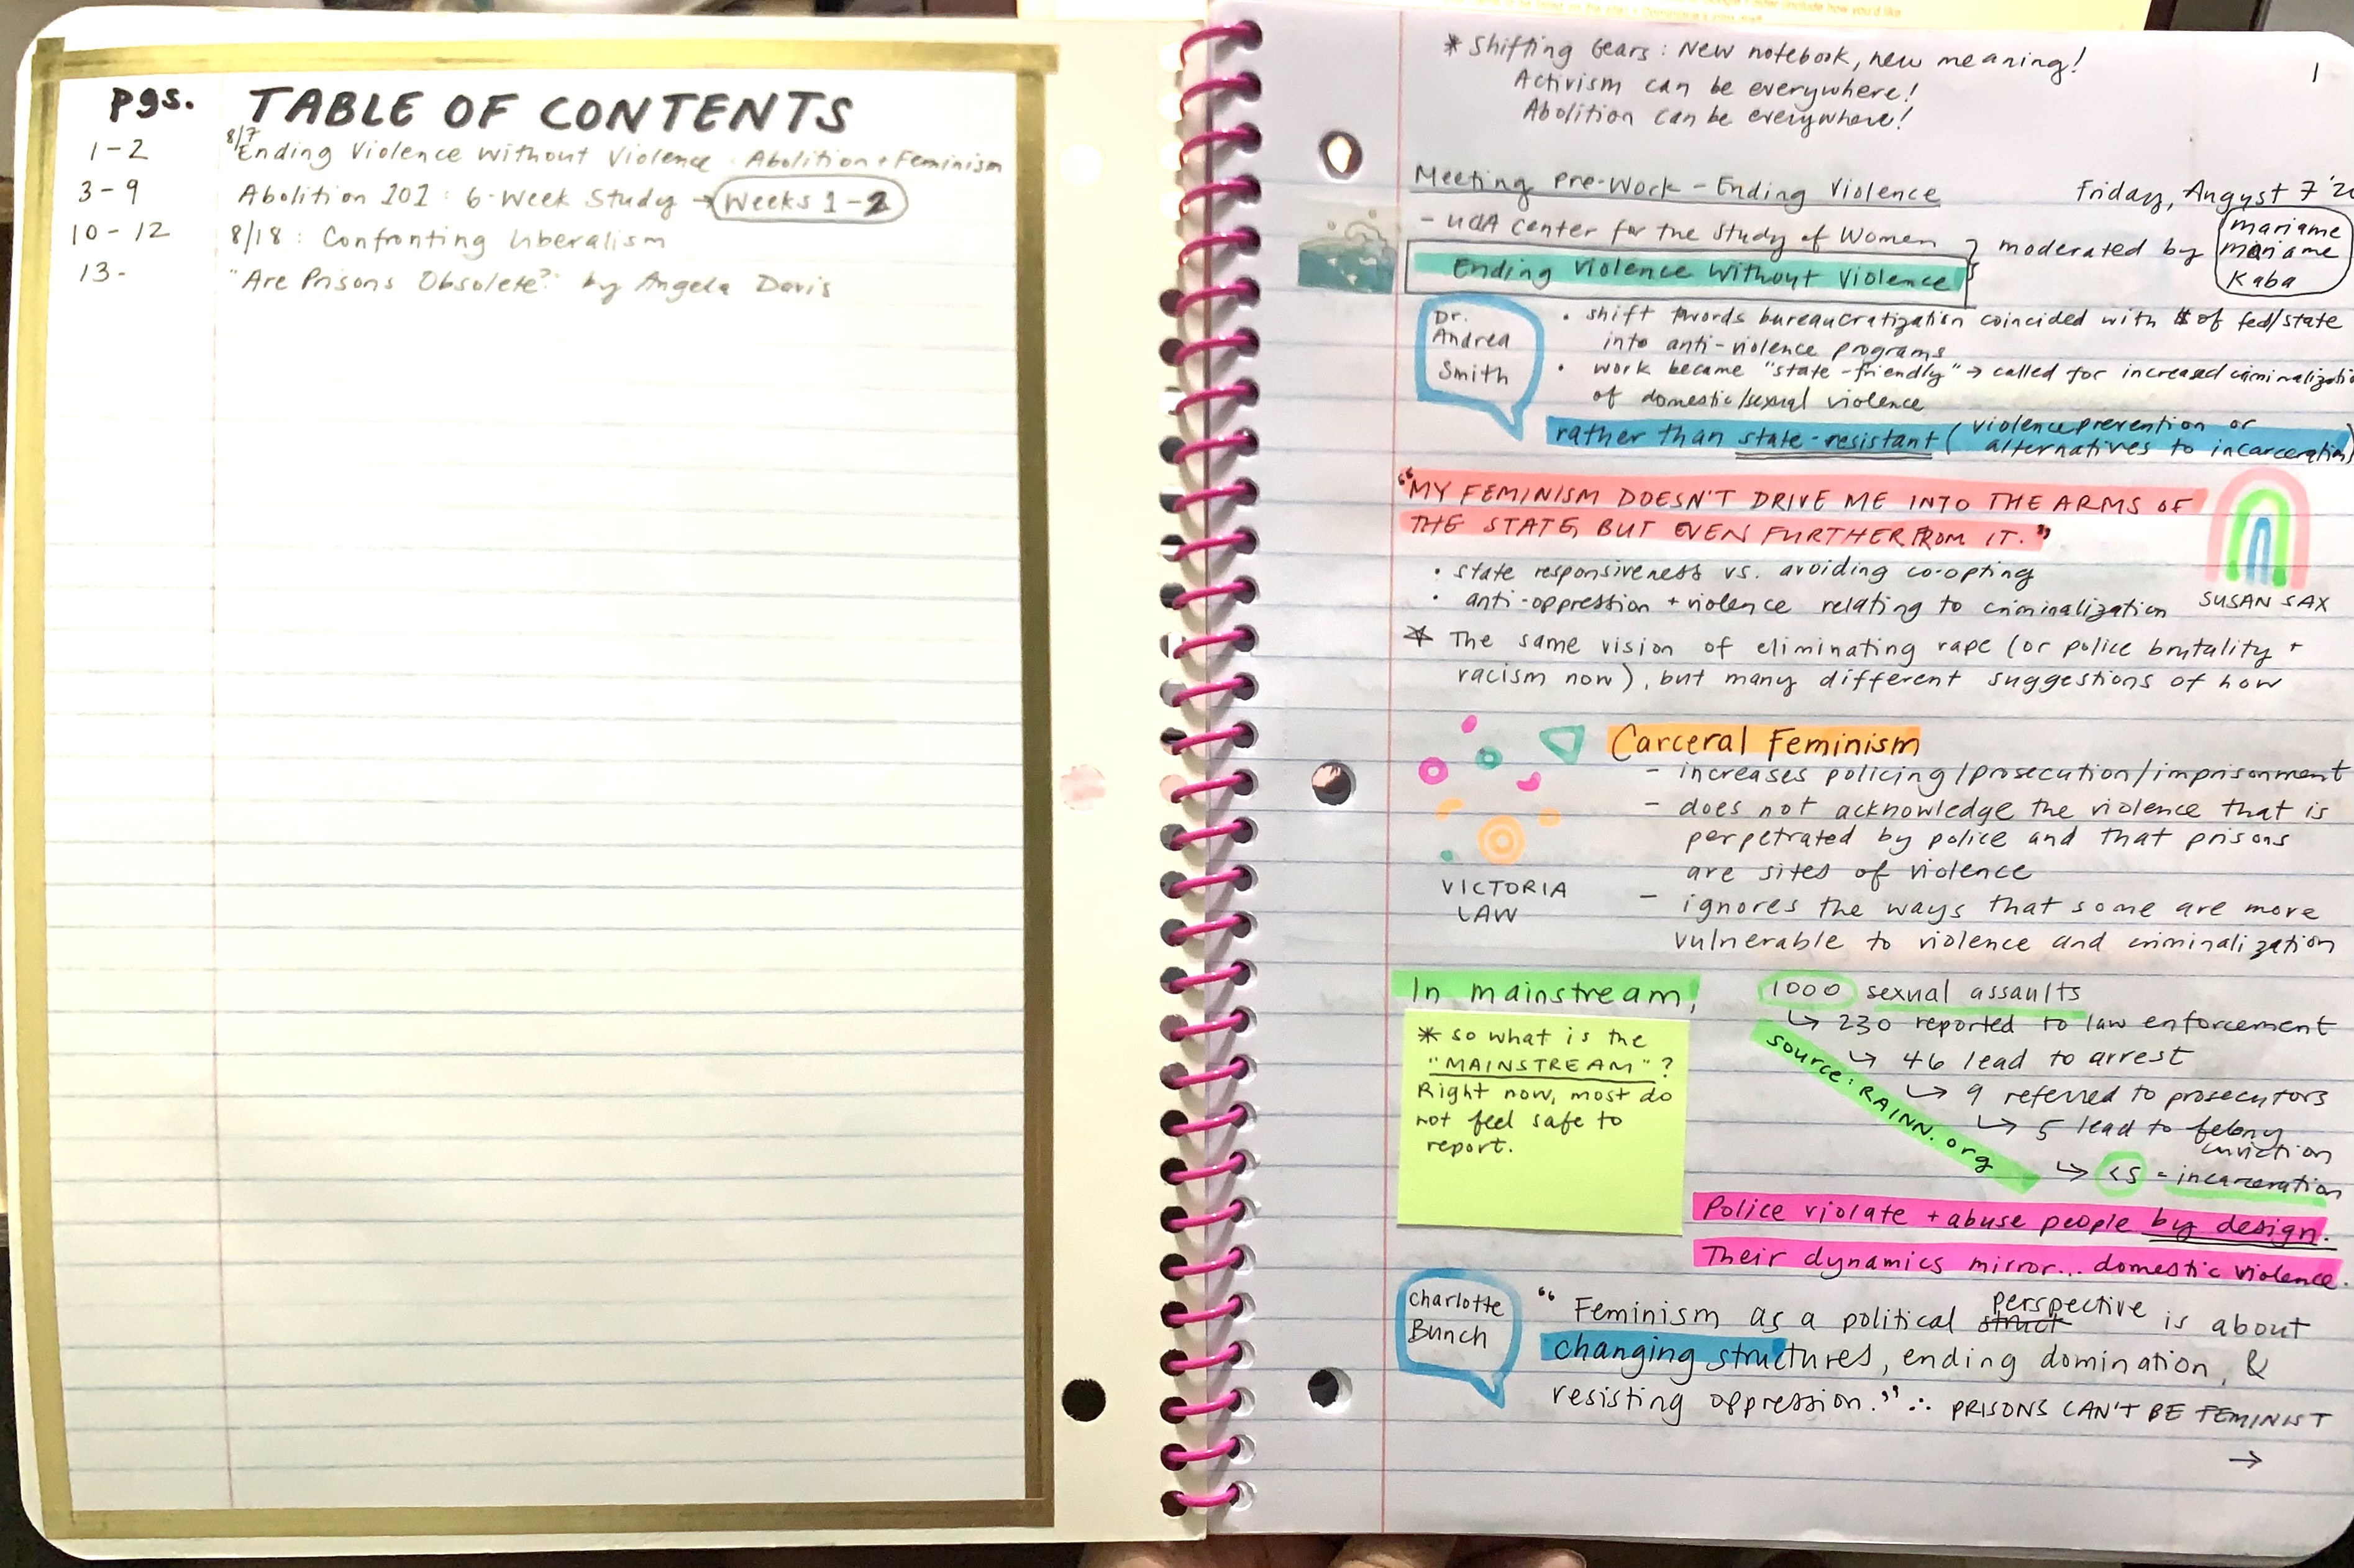 pgs. TABLE OF CONTENTS
8/7
1-2 Ending Violence Without Violence : Abolition + Feminism
3-9 Abolition 101 : 6-Week Study → Weeks 1-2
10-12 8/18 : Confronting Liberalism
13- "Are Prisons Obsolete?" by Angela Davis
1
* Shifting Gears : New notebook, new meaning!
Activism can be everywhere!
Abolition can be everywhere!
Meeting Pre-Work - Ending Violence
Friday, August 7 '20
- UCLA Center for the Study of Women
Ending Violence Without Violence
moderated by
Mariame
Mariame
Kaba
Dr.
Andrea
Smith
• shift twords bureaucratization coincided with $ of fed/state
into anti-violence programs
• work became "state-friendly" → called for increased criminalizatio
of domestic/sexual violence
rather than state-resistant (violence prevention or
alternatives to incarceration)
"MY FEMINISM DOESN'T DRIVE ME INTO THE ARMS OF
THE STATE, BUT EVEN FURTHER FROM IT."
• state responsiveness vs. avoiding co-opting
• anti-oppression + violence relating to criminalization
SUSAN SAX
* The same vision of eliminating rape (or police brutality +
racism now), but many different suggestions of how
Carceral Feminism
- increases policing/prosecution/imprisonment
- does not acknowledge the violence that is
perpetrated by police and that prisons
are sites of violence
- ignores the ways that some are more
vulnerable to violence and criminalization
VICTORIA
LAW
In mainstream,
* so what is the
"MAINSTREAM"?
Right now, most do
not feel safe to
report.
1000 sexual assaults
↳ 230 reported to law enforcement
↳ 46 lead to arrest
↳ 9 referred to prosecutors
↳ 5 lead to felony
conviction
↳ <5 = incarceration
source: RAINN.org
Police violate + abuse people by design.
Their dynamics mirror... domestic violence.
Charlotte
Bunch
" Feminism as a political struct perspective is about
changing structures, ending domination, &
resisting oppression." ∴ PRISONS CAN'T BE FEMINIST
→